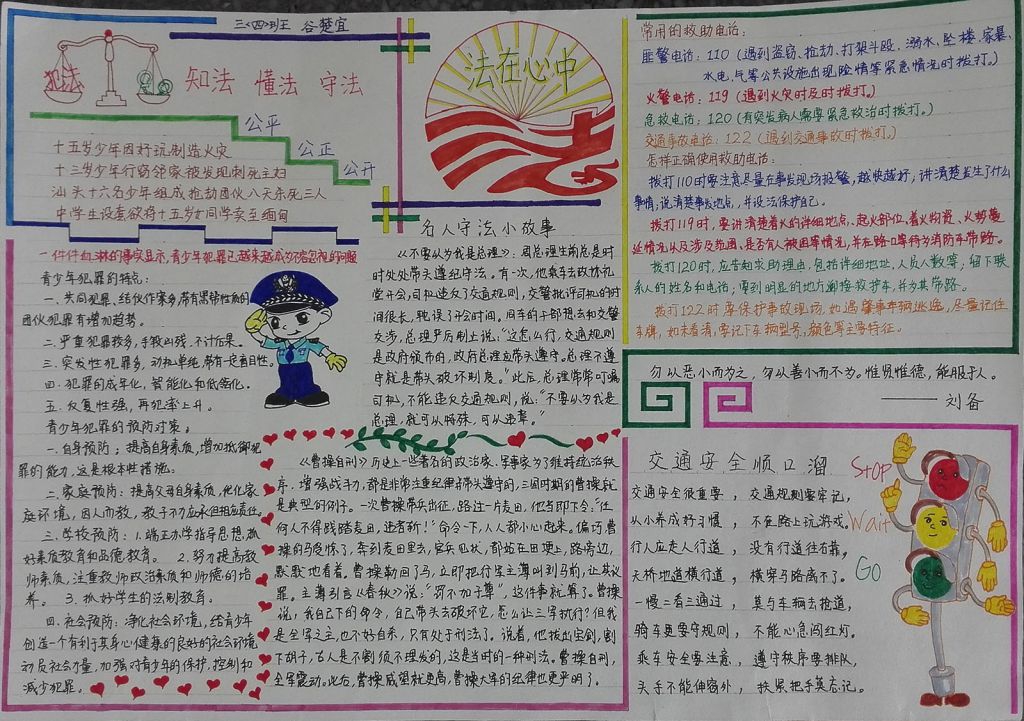 三<四>班 谷楚宜
犯法
知法 懂法 守法
公平
公正
公开
十五岁少年因好玩制造火灾
十三岁少年行窃邻家被发现刺死主妇
汕头十六名少年组成抢劫团伙八天杀死三人
中学生设套欲将十五岁女同学卖至缅甸
一件件血淋的事实显示,青少年犯罪已越来越成为不容忽视的问题
青少年犯罪的特点:
一.共同犯罪、结伙作案多,带有黑帮性质的
团伙犯罪有增加趋势。
二.严重犯罪较多,手段凶残、不计后果。
三.突发性犯罪多,动机单纯,带有一定盲目性。
四.犯罪的成年化,智能化和低龄化。
五.反复性强,再犯率上升。
青少年犯罪的预防对策。
一.自身预防:提高自身素质,增加抵御犯
罪的能力,这是根本性措施。
二.家庭预防:提高父母自身素质,优化家
庭环境,因人而教,教子不力应承担相应责任。
三.学校预防:1.端正办学指导思想,抓
好素质教育和品德教育。 2.努力提高教
师素质,注重教师政治素质和师德的培
养。 3.抓好学生的法制教育。
四.社会预防:净化社会环境,给青少年
创造一个有利于其身心健康的良好的社会环境
动员社会力量,加强对青少年的保护、控制和
减少犯罪。
法在心中
名人守法小故事
《不要以为我是总理》:周总理生前总是时
时处处带头遵纪守法。有一次,他乘车去政协礼
堂开会,司机违反了交通规则,交警批评司机的时
间很长,耽误了开会时间。同车的干部想去和交警
交涉,总理严厉制止说:“这怎么行,交通规则
是政府颁布的,政府总理应带头遵守。总理不遵
守就是带头破坏制度。”此后,总理常常叮嘱
司机,不能违反交通规则,说:“不要以为我是
总理,就可以特殊,可以违章。”
《曹操自刑》历史上一些著名的政治家、军事家为了维持统治秩
序,增强战斗力,都是非常注重纪律带头遵守的,三国时期的曹操就
是典型的例子。一次曹操带兵出征,路过一片麦田,他当即下令:“任
何人不得践踏麦田,违者斩!”命令一下,人人都小心起来。偏巧曹
操的马受惊了,奔到麦田里去,官兵见状,都站在田埂上,路旁边,
默默地看着。曹操勒回了马,立即把行军主簿叫到马前,让其议
罪。主簿引言《春秋》说:“罚不加于尊”,这件事就算了。曹操
说,我自己下的命令,自己带头去破坏它,怎么让三军执行?但我
是全军之主,也不好自杀,只有处于刑法了。说着,他拔出宝剑,割
下胡子,古人是不割须不理发的,这是当时的一种刑法。曹操自刑,
全军震动。此后,曹操威望就更高,曹操大军的纪律也更严明了。
常用的救助电话:
匪警电话:110(遇到盗窃、抢劫、打架斗殴、溺水、坠楼、家暴、
水电、气等公共设施出现险情等紧急情况时拨打。)
火警电话:119(遇到火灾时及时拨打。)
急救电话:120(有突发病人需要紧急救治时拨打。)
交通事故电话:122(遇到交通事故时拨打。)
怎样正确使用救助电话:
拨打110时要注意尽量在事发现场报警,越快越好;讲清楚发生了什么
事情;说清楚事发地点,并设法保护自己。
拨打119时,要讲清楚着火的详细地点、起火部位、着火物资、火势蔓
延情况以及涉及范围,是否有人被困等情况,并在路口等待为消防车带路。
拨打120时,应告知求助理由,包括详细地址,人员人数等;留下联
系人的姓名和电话;要到明显的地方迎接救护车,并为其带路。
拨打122时要保护事故现场,如遇肇事车辆逃逸,尽量记住
车牌,如未看清,要记下车辆型号、颜色等主要特征。
勿以恶小而为之,勿以善小而不为。惟贤惟德,能服于人。
——刘备
交通安全顺口溜
交通安全很重要,交通规则要牢记,
从小养成好习惯,不在路上玩游戏。
行人应走人行道,没有行道往右靠,
天桥地道横行道,横穿马路离不了。
一慢二看三通过,莫与车辆去抢道,
骑车更要守规则,不能心急闯红灯。
乘车安全要注意,遵守秩序要排队,
头手不能伸窗外,扶紧把手莫忘记。
Stop
Wait
GO